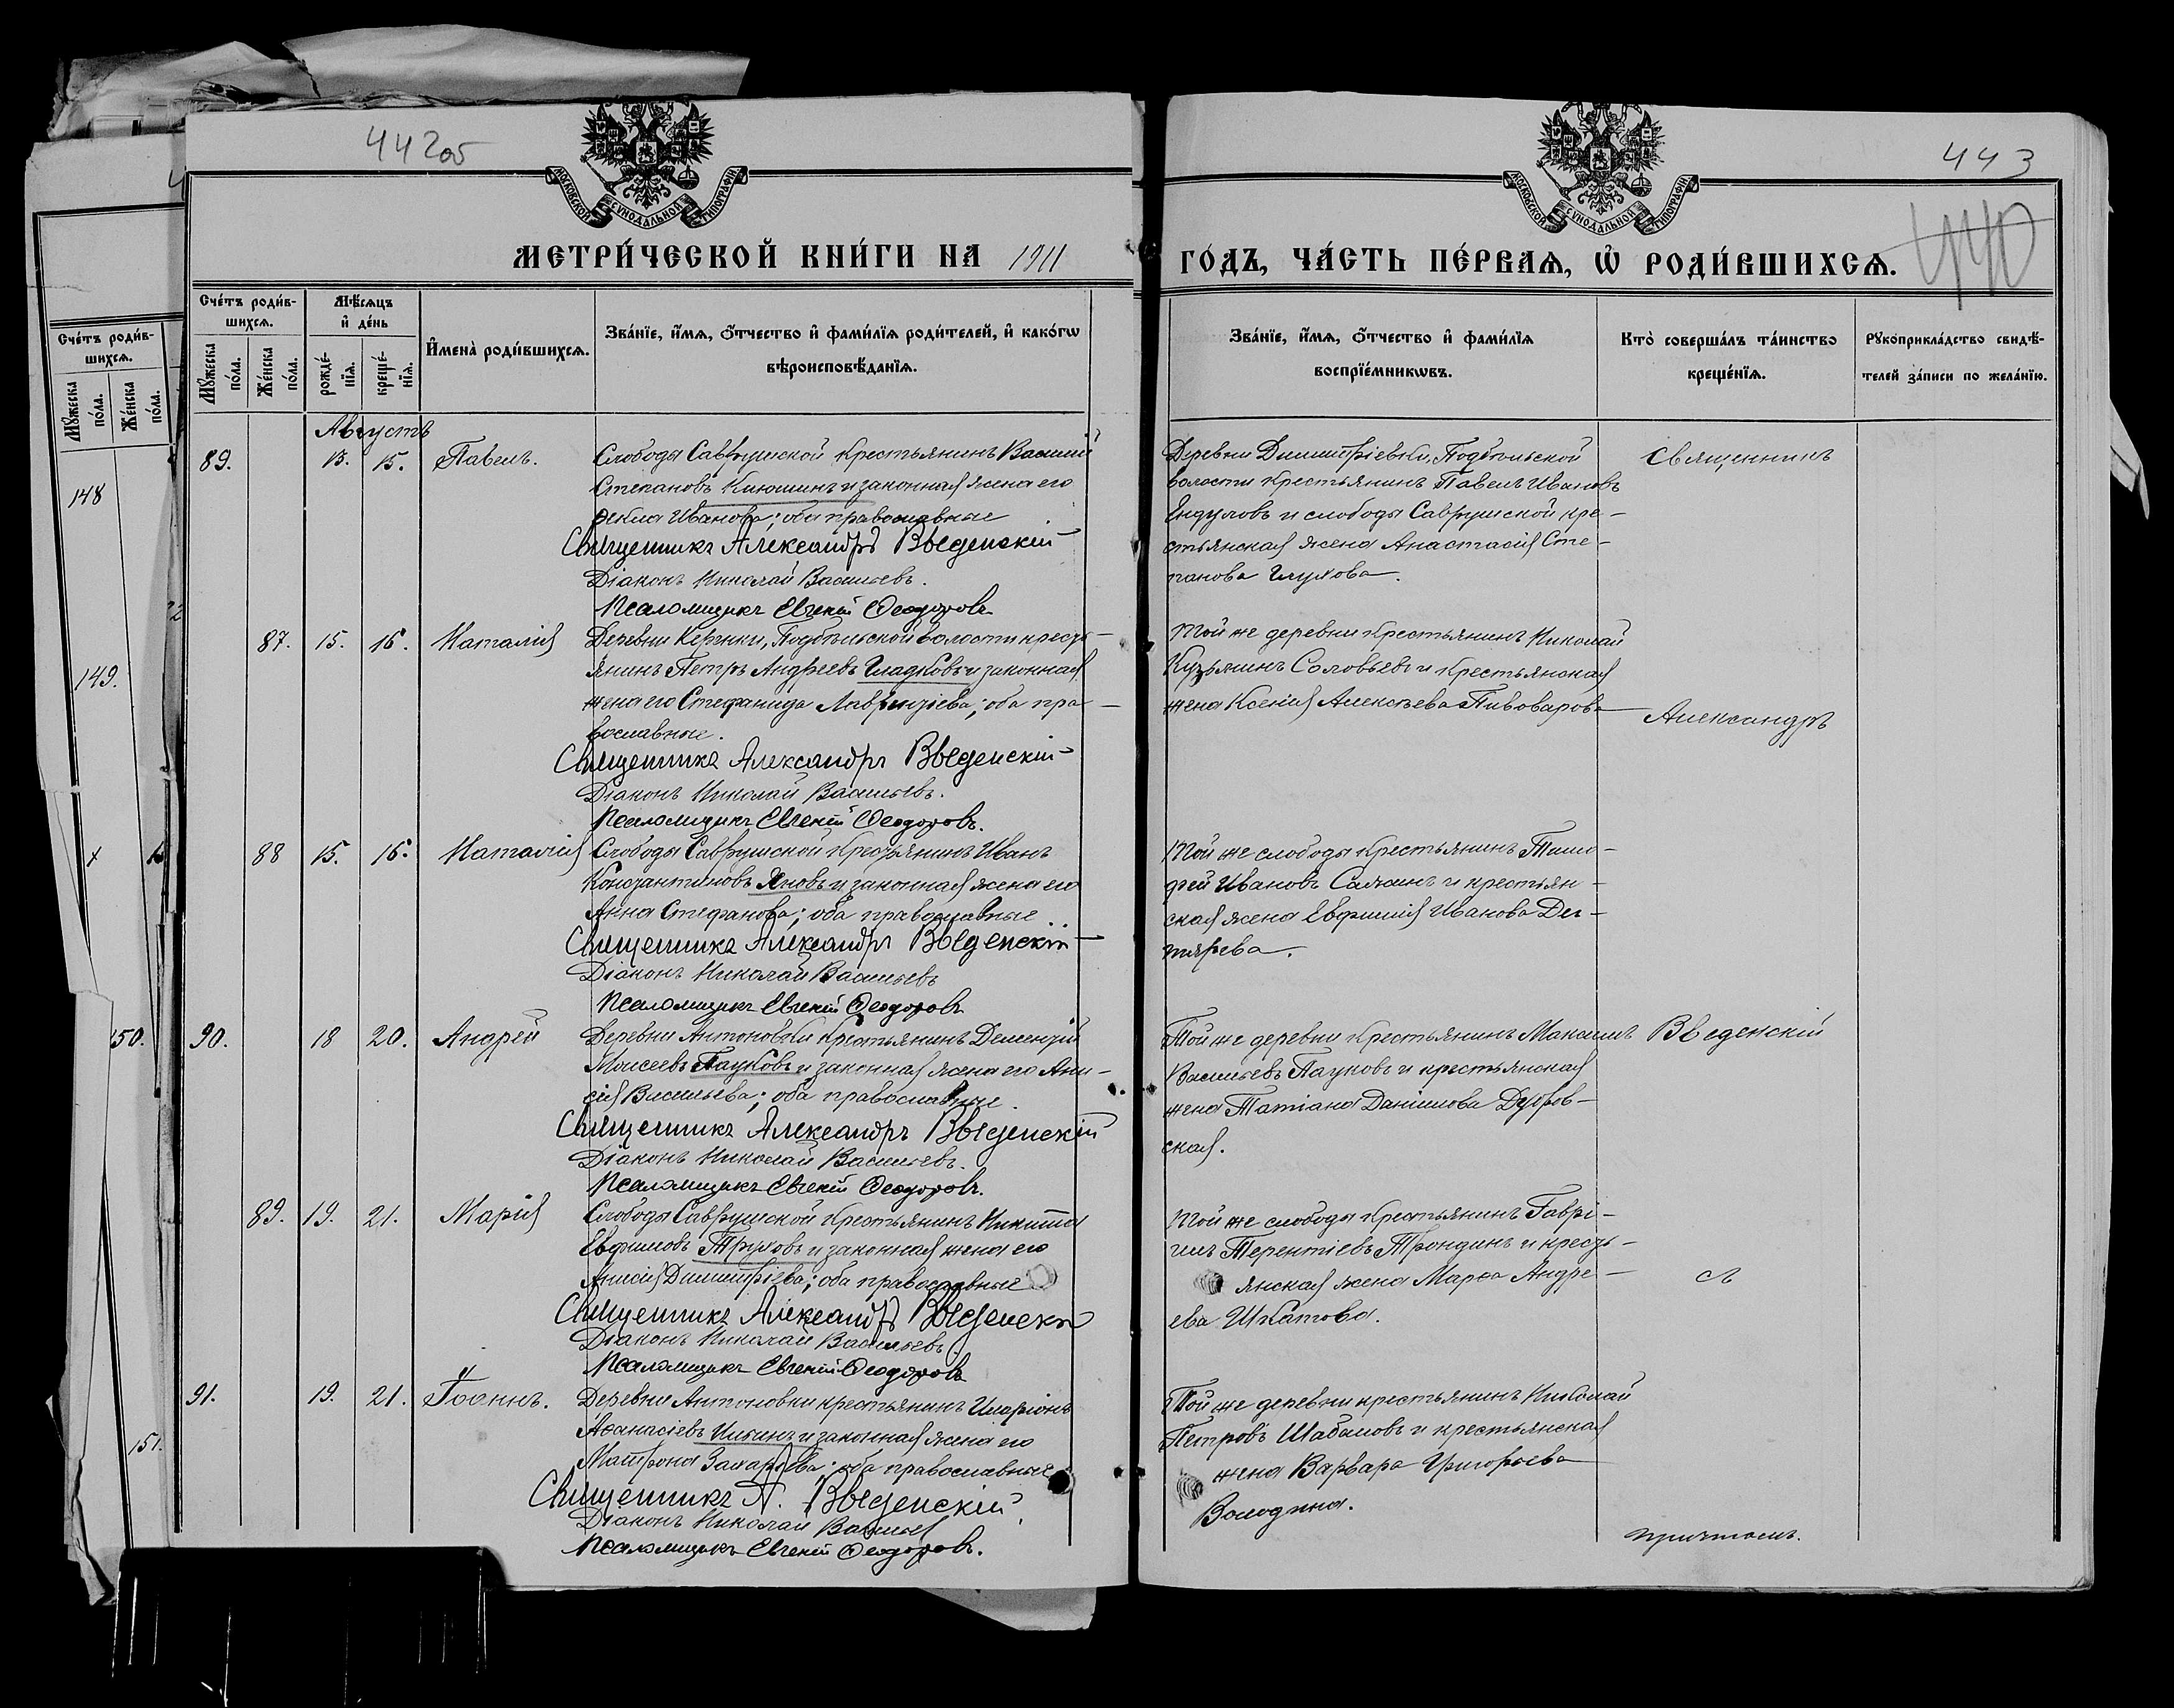 442об
443
440
МОСКОВСКОЙ СѴНОДАЛЬНОЙ ТИПОГРАФІИ
МОСКОВСКОЙ СѴНОДАЛЬНОЙ ТИПОГРАФІИ
МЕТРИ́ЧЕСКОЙ КНИ́ГИ НА 1911
ГО́ДЪ, ЧА́СТЬ ПЕ́РВАѦ, Ѡ҆ РОДИ́ВШИХСѦ.
Сче́тъ роди́в-
шихсѧ.
Мꙋ́жеска
по́ла.
Же́нска
по́ла.
148
149.
150.
151.
Сче́тъ роди́в-
шихсѧ.
Мꙋ́жеска
по́ла.
Же́нска
по́ла.
Мѣ́сѧцъ
и҆ де́нь
рожде́-
нїѧ.
креще́-
нїѧ.
И҆мена̀ роди́вшихсѧ.
Зва́нїе, и҆́мѧ, ѻ҆́тчество и҆ фами́лїѧ роди́телей, и҆ како́гѡ
вѣроисповѣ́данїѧ.
Зва́нїе, и҆́мѧ, ѻ҆́тчество и҆ фами́лїѧ
воспрїе́мникѡвъ.
Кто̀ соверша́лъ та́инство
креще́нїѧ.
Рꙋкоприкла́дство свидѣ́-
телей за́писи по жела́нїю.
Августъ
89. 13. 15. Павелъ.
Слободы Саврушской крестьянинъ Василій
Степановъ Клюшинъ и законная жена его
Ѳекла Иванова; оба православные
Священникъ Александръ Введенскій
Діаконъ Николай Васильевъ.
Псаломщикъ Евгеній Ѳеодоровъ
Деревни Димитріевки, Подбѣльской
волости крестьянинъ Павелъ Ивановъ
Ендуловъ и слободы Саврушской кре-
стьянская жена Анастасія Сте-
панова Глухова.
Священникъ
87. 15. 16. Наталія
Деревни Кержки, Подбѣльской волости кресть-
янинъ Петръ Андреевъ Гладковъ и законная
жена его Стефанида Лаврентіева; оба пра-
вославные.
Священникъ Александръ Введенскій
Діаконъ Николай Васильевъ.
Псаломщикъ Евгеній Ѳеодоровъ.
Той же деревни крестьянинъ Николай
Кузьминъ Соловьевъ и крестьянская
жена Ксенія Алексѣева Пивоварова
Александръ
88 15. 16. Наталія
Слободы Саврушской крестьянинъ Иванъ
Константиновъ Яновъ и законная жена его
Анна Стефанова; оба православные.
Священникъ Александръ Введенскій
Діаконъ Николай Васильевъ
Псаломщикъ Евгеній Ѳеодоровъ
Той же слободы крестьянинъ Тимо-
фей Ивановъ Салминъ и крестьян-
ская жена Евфимія Иванова Дег-
тярева.
90. 18 20. Андрей
Деревни Антоновки крестьянинъ Дементій
Моисеевъ Пауковъ и законная жена его Ани-
сія Васильева; оба православные.
Священникъ Александръ Введенскій
Діаконъ Николай Васильевъ.
Псаломщикъ Евгеній Ѳеодоровъ.
Той же деревни крестьянинъ Максимъ
Васильевъ Пауковъ и крестьянская
жена Татіана Даніилова Дубров-
ская.
Введенскій
89. 19. 21. Марія
Слободы Саврушской крестьянинъ Никита
Евфимовъ Труховъ и законная жена его
Анисія Димитріева; оба православные
Священникъ Александръ Введенскій
Діаконъ Николай Васильевъ.
Псаломщикъ Евгеній Ѳеодоровъ
Той же слободы крестьянинъ Гаврі-
илъ Терентіевъ Трондинъ и кресть-
янская жена Марѳа Андре-
ева Шкатова.
съ
91. 19. 21. Іоаннъ.
Деревни Антоновки крестьянинъ Иларіонъ
Аѳанасіевъ Илькинъ и законная жена его
Матрона Захаріева; оба православные
Священникъ А. Введенскій
Діаконъ Николай Васильевъ
Псаломщикъ Евгеній Ѳеодоровъ.
Той же деревни крестьянинъ Николай
Петровъ Шабаловъ и крестьянская
жена Варвара Григорьева
Володина.
причтомъ.